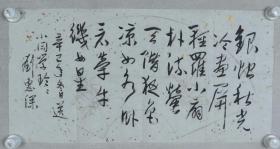 銀燭秋光
冷畫屏
輕羅小扇
扑流螢
天階夜色
涼如水卧
看牽牛
織女星
辛巳年冬日送
小同學
劉惠